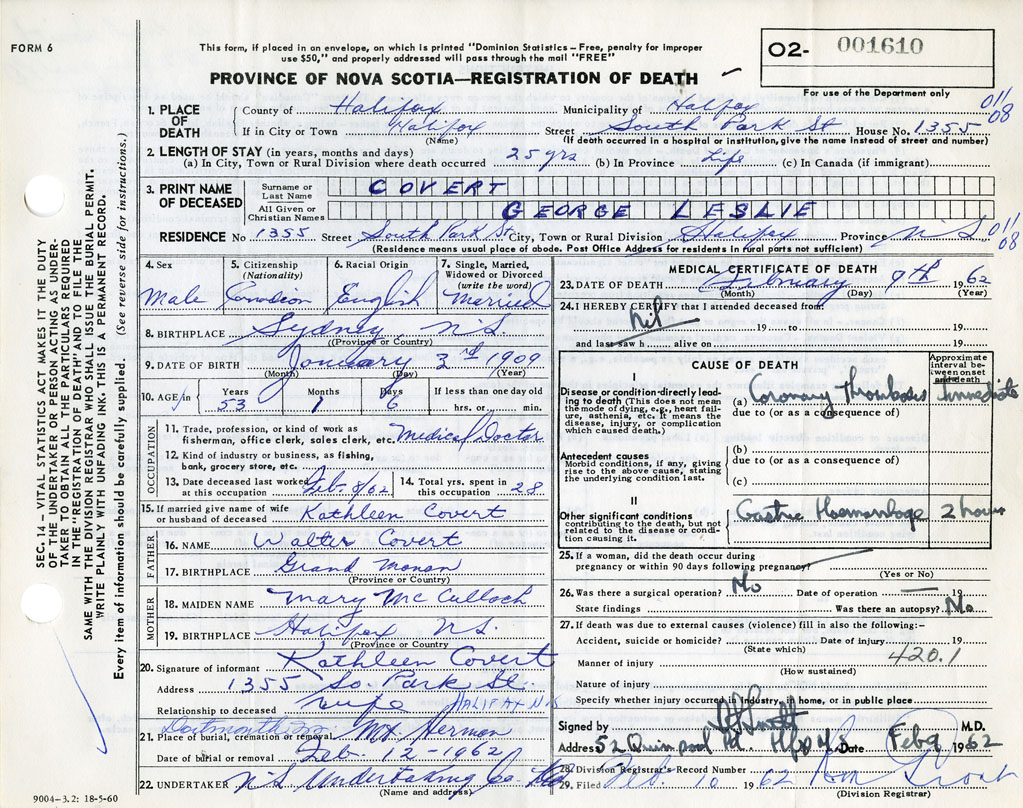 FORM 6
This form, if placed in an envelope, on which is printed "Dominion Statistics – Free, penalty for improper
use $50," and properly addressed will pass through the mail "FREE"
PROVINCE OF NOVA SCOTIA—REGISTRATION OF DEATH
O2- 001610
For use of the Department only
SEC. 14 – VITAL STATISTICS ACT MAKES IT THE DUTY
OF THE UNDERTAKER OR PERSON ACTING AS UNDER-
TAKER TO OBTAIN ALL THE PARTICULARS REQUIRED
IN THE "REGISTRATION OF DEATH" AND TO FILE THE
SAME WITH THE DIVISION REGISTRAR WHO SHALL ISSUE THE BURIAL PERMIT.
WRITE PLAINLY WITH UNFADING INK. THIS IS A PERMANENT RECORD.
Every item of information should be carefully supplied. (See reverse side for instructions.)
1. PLACE OF DEATH County of Halifax Municipality of Halfax 011/08
If in City or Town Halifax Street South Park St House No. 1355
(Name) (If death occurred in a hospital or institution, give the name instead of street and number)
2. LENGTH OF STAY (in years, months and days)
(a) In City, Town or Rural Division where death occurred 25 yrs (b) In Province Life (c) In Canada (if immigrant)
3. PRINT NAME OF DECEASED Surname or Last Name COVERT
All Given or Christian Names GEORGE LESLIE
RESIDENCE No 1355 Street South Park St. City, Town or Rural Division Halifax Province N S 011/08
(Residence means usual place of abode. Post Office Address for residents in rural parts not sufficient)
4. Sex 5. Citizenship (Nationality) 6. Racial Origin 7. Single, Married, Widowed or Divorced (write the word)
Male Canadian English Married
8. BIRTHPLACE Sydney N.S.
(Province or Country)
9. DATE OF BIRTH January 3rd 1909
(Month) (Day) (Year)
10. AGE in Years Months Days If less than one day old
53 1 6 hrs. or min.
OCCUPATION
11. Trade, profession, or kind of work as
fisherman, office clerk, sales clerk, etc. Medical Doctor
12. Kind of industry or business, as fishing,
bank, grocery store, etc
13. Date deceased last worked at this occupation Feb 8/62 14. Total yrs. spent in this occupation 28
15. If married give name of wife or husband of deceased Kathleen Covert
FATHER
16. NAME Walter Covert
17. BIRTHPLACE Grand Manan
(Province or Country)
MOTHER
18. MAIDEN NAME Mary McCulloch
19. BIRTHPLACE Halifax N.S.
(Province or Country
20. Signature of informant Kathleen Covert
Address 1355 So. Park St.
Relationship to deceased wife HALIFAX N.S
Dartmouth
21. Place of burial, cremation or removal Mt Hermon
Date of burial or removal Feb. 12 - 1962
22. UNDERTAKER N S Undertaking Co. Ltd
(Name and address)
9004–3.2: 18-5-60
MEDICAL CERTIFICATE OF DEATH
23. DATE OF DEATH February 9th 1962
(Month) (Day) (Year)
24. I HEREBY CERTIFY that I attended deceased from:
Nil 19 to 19
and last saw h alive on 19
CAUSE OF DEATH
Approximate interval between onset and death
I
Disease or condition directly leading to death (This does not mean the mode of dying, e.g., heart failure, asthenia, etc. It means the disease, injury, or complication which caused death.)
(a) Coronary Thrombosis Immediate
due to (or as a consequence of)
Antecedent causes
Morbid conditions, if any, giving rise to the above cause, stating the underlying condition last.
(b)
due to (or as a consequence of)
(c)
II
Other significant conditions
contributing to the death, but not related to the disease or condition causing it.
Gastric Haemorrhage 2 hours
25. If a woman, did the death occur during
pregnancy or within 90 days following pregnancy?
(Yes or No)
26. Was there a surgical operation? No Date of operation 19
State findings Was there an autopsy? No
27. If death was due to external causes (violence) fill in also the following:–
Accident, suicide or homicide? Date of injury 19
(State which) 420.1
Manner of injury
(How sustained)
Nature of injury
Specify whether injury occurred in Industry, home, or in public place
Signed by M.D.
Address 52 Quinpool Rd Date Feb 9 1962
28. Division Registrar's Record Number
29. Filed Feb. 10 1962
(Division Registrar)